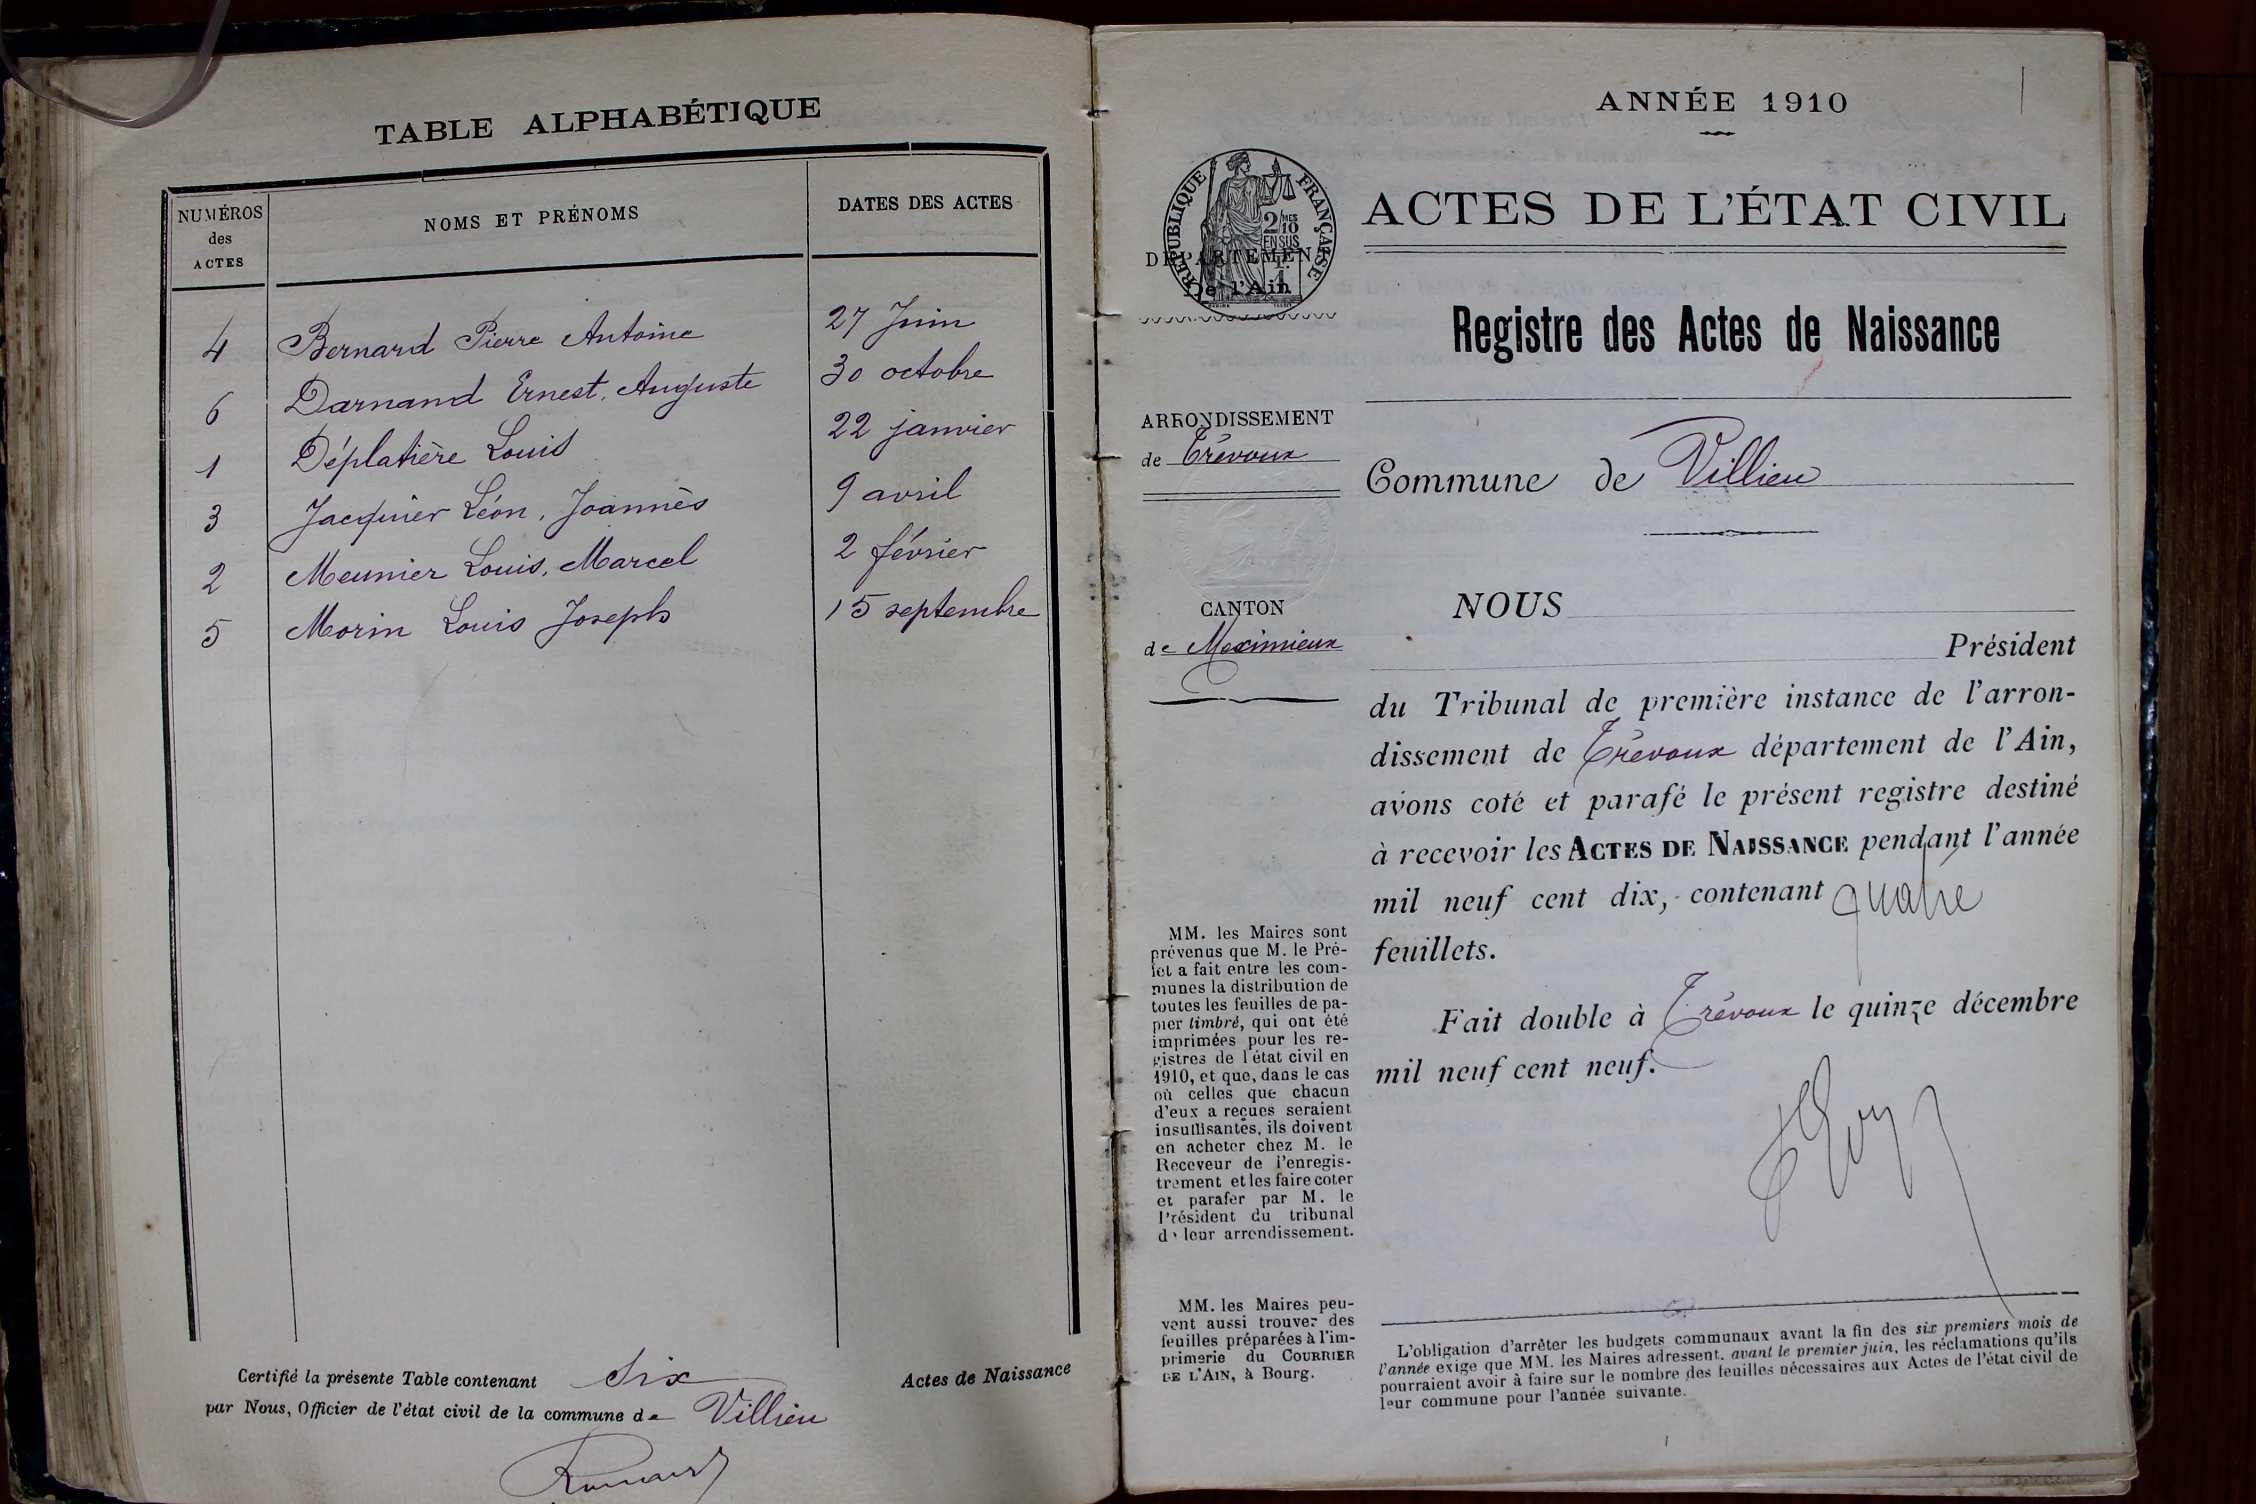 TABLE ALPHABÉTIQUE
NUMÉROS
des
ACTES
NOMS ET PRÉNOMS
DATES DES ACTES
4 Bernard Pierre Antoine 27 Juin
6 Darnand Ernest, Auguste 30 octobre
1 Déplatière Louis 22 janvier
3 Jacquier Léon, Joannès 9 avril
2 Meunier Louis, Marcel 2 février
5 Morin Louis Joseph 15 septembre
Certifié la présente Table contenant six Actes de Naissance
par Nous, Officier de l'état civil de la commune de Villieu
ANNÉE 1910
RÉPUBLIQUE FRANÇAISE
2/10 MES
EN SUS
DÉPARTEMENT
De l'Ain
ACTES DE L'ÉTAT CIVIL
Registre des Actes de Naissance
ARRONDISSEMENT
de Trévoux
Commune de Villieu
CANTON
de Meximieux
NOUS
Président
du Tribunal de première instance de l'arron-
dissement de Trévoux département de l'Ain,
avons coté et parafé le présent registre destiné
à recevoir les ACTES DE NAISSANCE pendant l'année
mil neuf cent dix, contenant quatre
feuillets.
Fait double à Trévoux le quinze décembre
mil neuf cent neuf.
MM. les Maires sont
prévenus que M. le Pré-
fet a fait entre les com-
munes la distribution de
toutes les feuilles de pa-
pier timbré, qui ont été
imprimées pour les re-
gistres de l'état civil en
1910, et que, dans le cas
où celles que chacun
d'eux a reçues seraient
insuffisantes, ils doivent
en acheter chez M. le
Receveur de l'enregis-
trement et les faire coter
et parafer par M. le
Président du tribunal
de leur arrondissement.
MM. les Maires peu-
vent aussi trouver des
feuilles préparées à l'im-
primerie du COURRIER
DE L'AIN, à Bourg.
L'obligation d'arrêter les budgets communaux avant la fin des six premiers mois de
l'année exige que MM. les Maires adressent, avant le premier juin, les réclamations qu'ils
pourraient avoir à faire sur le nombre des feuilles nécessaires aux Actes de l'état civil de
leur commune pour l'année suivante.